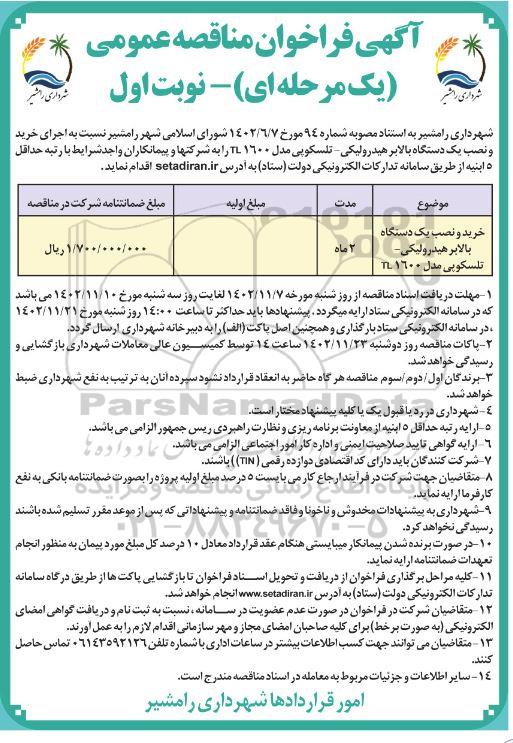 آگهی فراخوان مناقصه عمومی
(یک مرحله ای) - نوبت اول
شهرداری رامشیر
شهرداری رامشیر
شهرداری رامشیر به استناد مصوبه شماره ۹۴ مورخ ۱۴۰۲/۶/۷ شورای اسلامی شهر رامشیر نسبت به اجرای خرید
و نصب یک دستگاه بالابر هیدرولیکی- تلسکوپی مدل TL ۱۶۰۰ را به شرکتها و پیمانکاران واجد شرایط با رتبه حداقل
۵ ابنیه از طریق سامانه تدارکات الکترونیکی دولت (ستاد) به آدرس setadiran.ir اقدام نماید.
موضوع مدت مبلغ اولیه مبلغ ضمانتنامه شرکت در مناقصه
خرید و نصب یک دستگاه
بالابر هیدرولیکی- ۲ ماه ۱/۷۰۰/۰۰۰/۰۰۰ ریال
تلسکوپی مدل TL ۱۶۰۰
۱-مهلت دریافت اسناد مناقصه از روز شنبه مورخه ۱۴۰۲/۱۱/۷ لغایت روز سه شنبه مورخ ۱۴۰۲/۱۱/۱۰ می باشد
که در سامانه الکترونیکی ستاد ارایه میگردد. پیشنهادها باید حداکثر تا ساعت ۱۴:۰۰ روز شنبه مورخ ۱۴۰۲/۱۱/۲۱
، در سامانه الکترونیکی ستاد بارگذاری و همچنین اصل پاکت (الف) را به دبیرخانه شهرداری ارسال گردد.
۲-پاکات مناقصه روز دوشنبه ۱۴۰۲/۱۱/۲۳ ساعت ۱۴ توسط کمیسیون عالی معاملات شهرداری بازگشایی و
رسیدگی خواهد شد.
۳-برندگان اول/دوم/سوم مناقصه هر گاه حاضر به انعقاد قرارداد نشود سپرده آنان به ترتیب به نفع شهرداری ضبط
خواهد شد.
۴-شهرداری در رد یا قبول یک یا کلیه پیشنهاد مختار است.
۵-ارایه رتبه حداقل ۵ ابنیه از معاونت برنامه ریزی و نظارت راهبردی ریس جمهور الزامی می باشد.
۶-ارایه گواهی تایید صلاحیت ایمنی و اداره کار امور اجتماعی الزامی می باشد.
۷-شرکت کنندگان باید دارای کد اقتصادی دوازده رقمی (TIN)) باشند.
۸-متقاضیان جهت شرکت در فرآیند ارجاع کار می بایست ۵ درصد مبلغ اولیه پروژه را بصورت ضمانتنامه بانکی به نفع
کارفرما ارایه نماید.
۹-شهرداری به پیشنهادات مخدوش و ناخونا و فاقد ضمانتنامه و پیشنهاداتی که پس از موعد مقرر تسلیم شده باشند
رسیدگی نخواهد کرد.
۱۰-در صورت برنده شدن پیمانکار میبایستی هنگام عقد قرارداد معادل ۱۰ درصد کل مبلغ مورد پیمان به منظور انجام
تعهدات ضمانتنامه ارایه نماید.
۱۱-کلیه مراحل برگذاری فراخوان از دریافت و تحویل اسناد فراخوان تا بازگشایی پاکت ها از طریق درگاه سامانه
تدارکات الکترونیکی دولت (ستاد) به آدرس www.setadiran.ir انجام خواهد شد.
۱۲-متقاضیان شرکت در فراخوان در صورت عدم عضویت در سامانه، نسبت به ثبت نام و دریافت گواهی امضای
الکترونیکی (به صورت بر خط) برای کلیه صاحبان امضای مجاز و مهر سازمانی اقدام لازم را به عمل آورند.
۱۳-متقاضیان می توانند جهت کسب اطلاعات بیشتر در ساعات اداری با شماره تلفن ۰۶۱۴۳۵۹۲۱۲۶ تماس حاصل
کنند.
۱۴-سایر اطلاعات و جزئیات مربوط به معامله در اسناد مناقصه مندرج است.
امور قراردادها شهرداری رامشیر
ParsNamadData
پایگاه اطلاع رسانی مناقصه و مزایده
۰۲۱-۸۸۳۴۹۶۷۰-۵